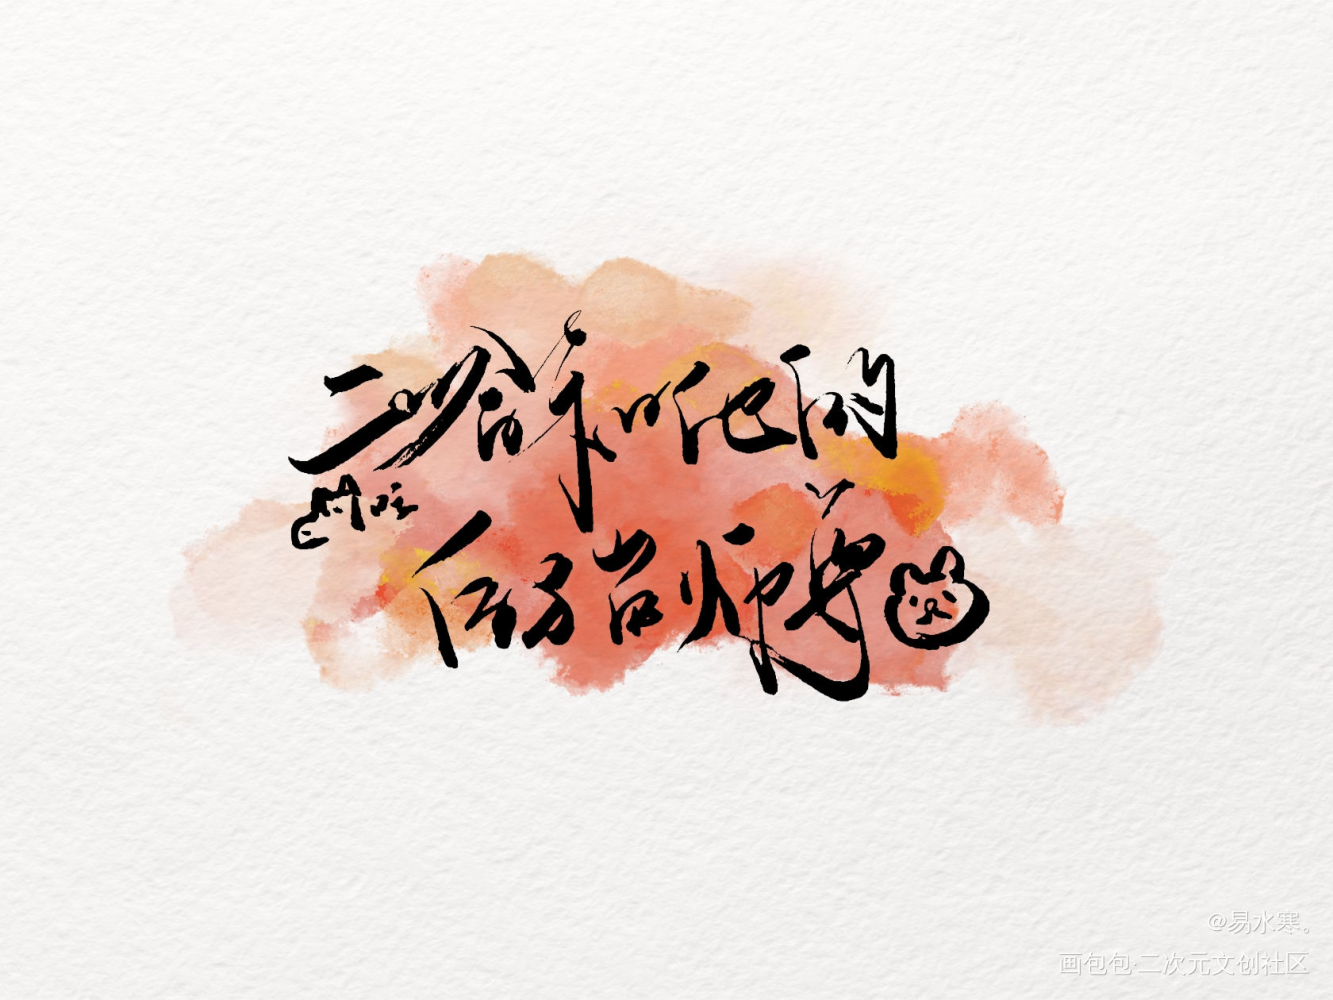 二哈和他的
白猫师尊
@易水寒。
画包包·二次元文创社区